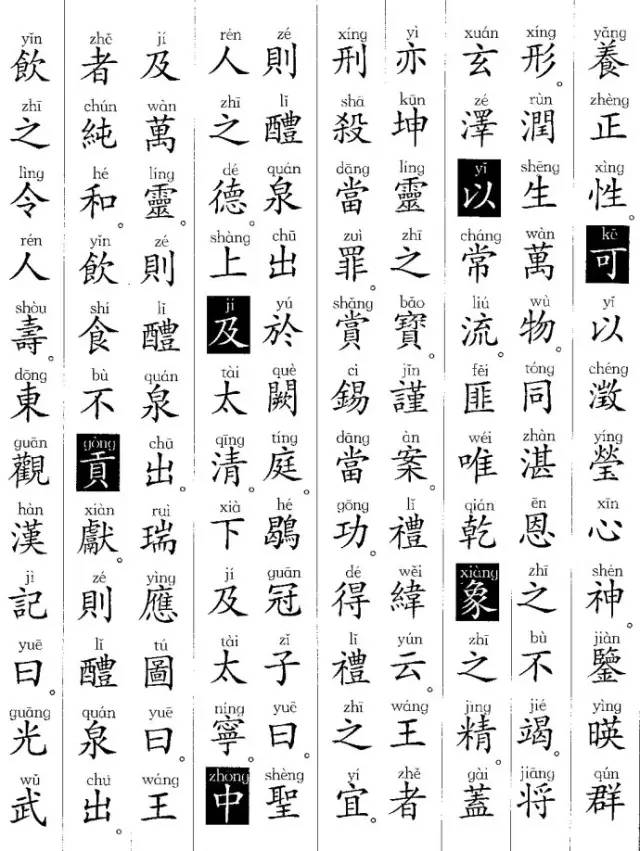 yǎng zhèng xìng kě yǐ chéng yíng xīn shén jiàn yìng qún
養正性。可以澂瑩心神。鑒暎群
xíng rùn shēng wàn wù tóng zhàn ēn zhī bù jié jiāng
形。潤生萬物。同湛恩之不竭。将
xuán zé yǐ cháng liú fěi wéi qián xiàng zhī jīng gài
玄澤以常流。匪唯乾象之精。蓋
yì kūn líng zhī bǎo jǐn àn lǐ wěi yún wáng zhě
亦坤靈之寶。謹案禮緯云。王者
xíng shā dāng zuì shǎng cì dāng gōng dé lǐ zhī yí
刑殺當罪。賞錫當功。得禮之宜。
zé lǐ quán chū yú què tíng hé guān zǐ yuē shèng
則醴泉出於闕庭。鶡冠子曰。聖
rén zhī dé shàng jí tài qīng xià jí tài níng zhōng
人之德。上及太清。下及太寧。中
jí wàn líng zé lǐ quán chū ruì yìng tú yuē wáng
及萬靈。則醴泉出。瑞應圖曰。王
zhě chún hé yǐn shí bù gòng xiàn zé lǐ quán chū
者純和。飲食不貢獻。則醴泉出。
yǐn zhī lìng rén shòu dōng guān hàn jì yuē guāng wǔ
飲之令人壽。東觀漢記曰。光武